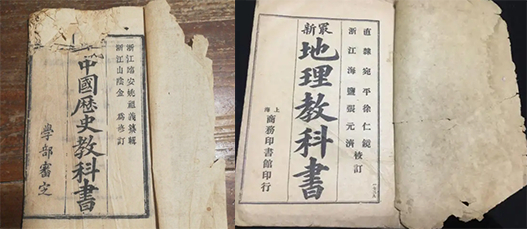 浙江瑞安姚祖義纂輯
浙江山陰金為修訂
中國歷史教科書
學部審定
直隸宛平徐仁鏡
浙江海鹽張元濟
校訂
最新
地理教科書
上海商務印書館印行